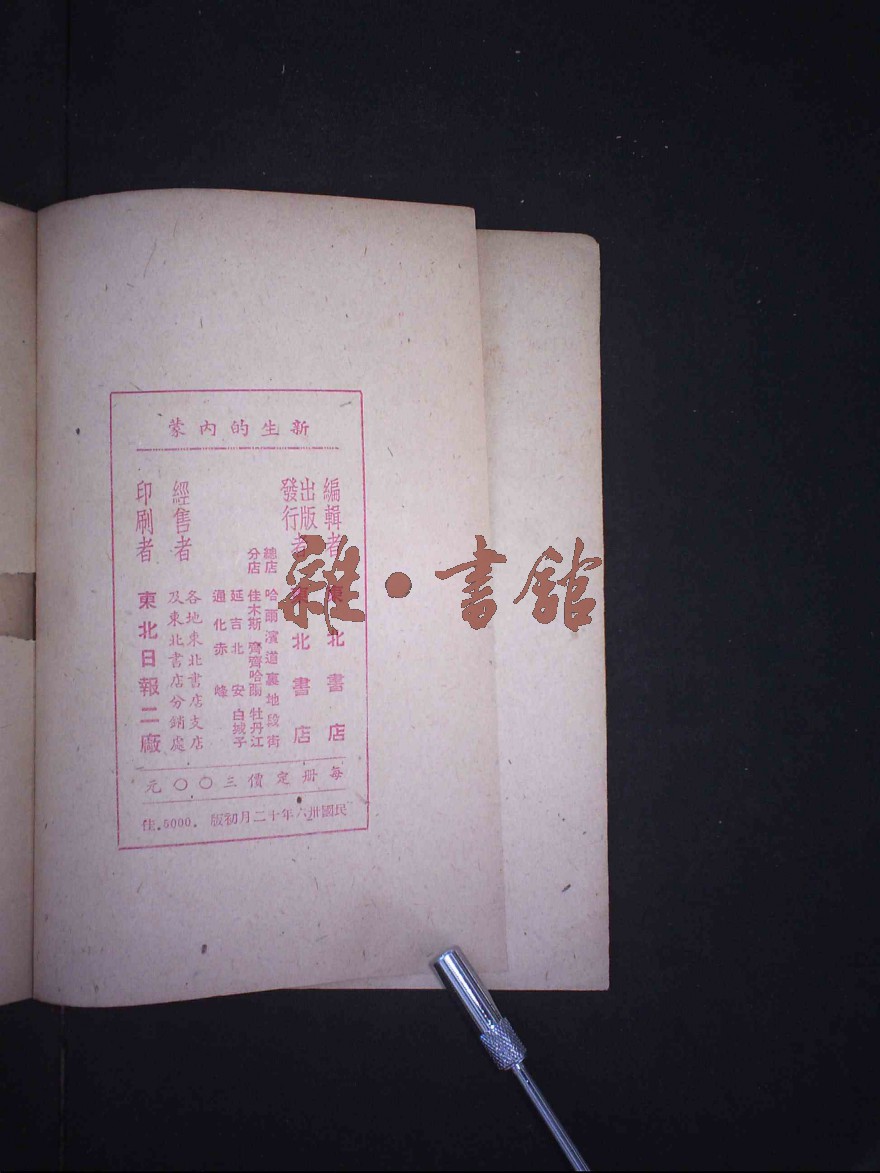 新生的內蒙
編輯者 東北書店
出版
發行者 東北書店
總店 哈爾濱道裏地段街
分店 佳木斯 齊齊哈爾 牡丹江
延吉 北安 白城子
通化 赤峰
經售者 各地東北書店支店
及東北書店分銷處
印刷者 東北日報二廠
每冊定價三〇〇元
民國卅六年十二月初版．5000．佳
雜·書館